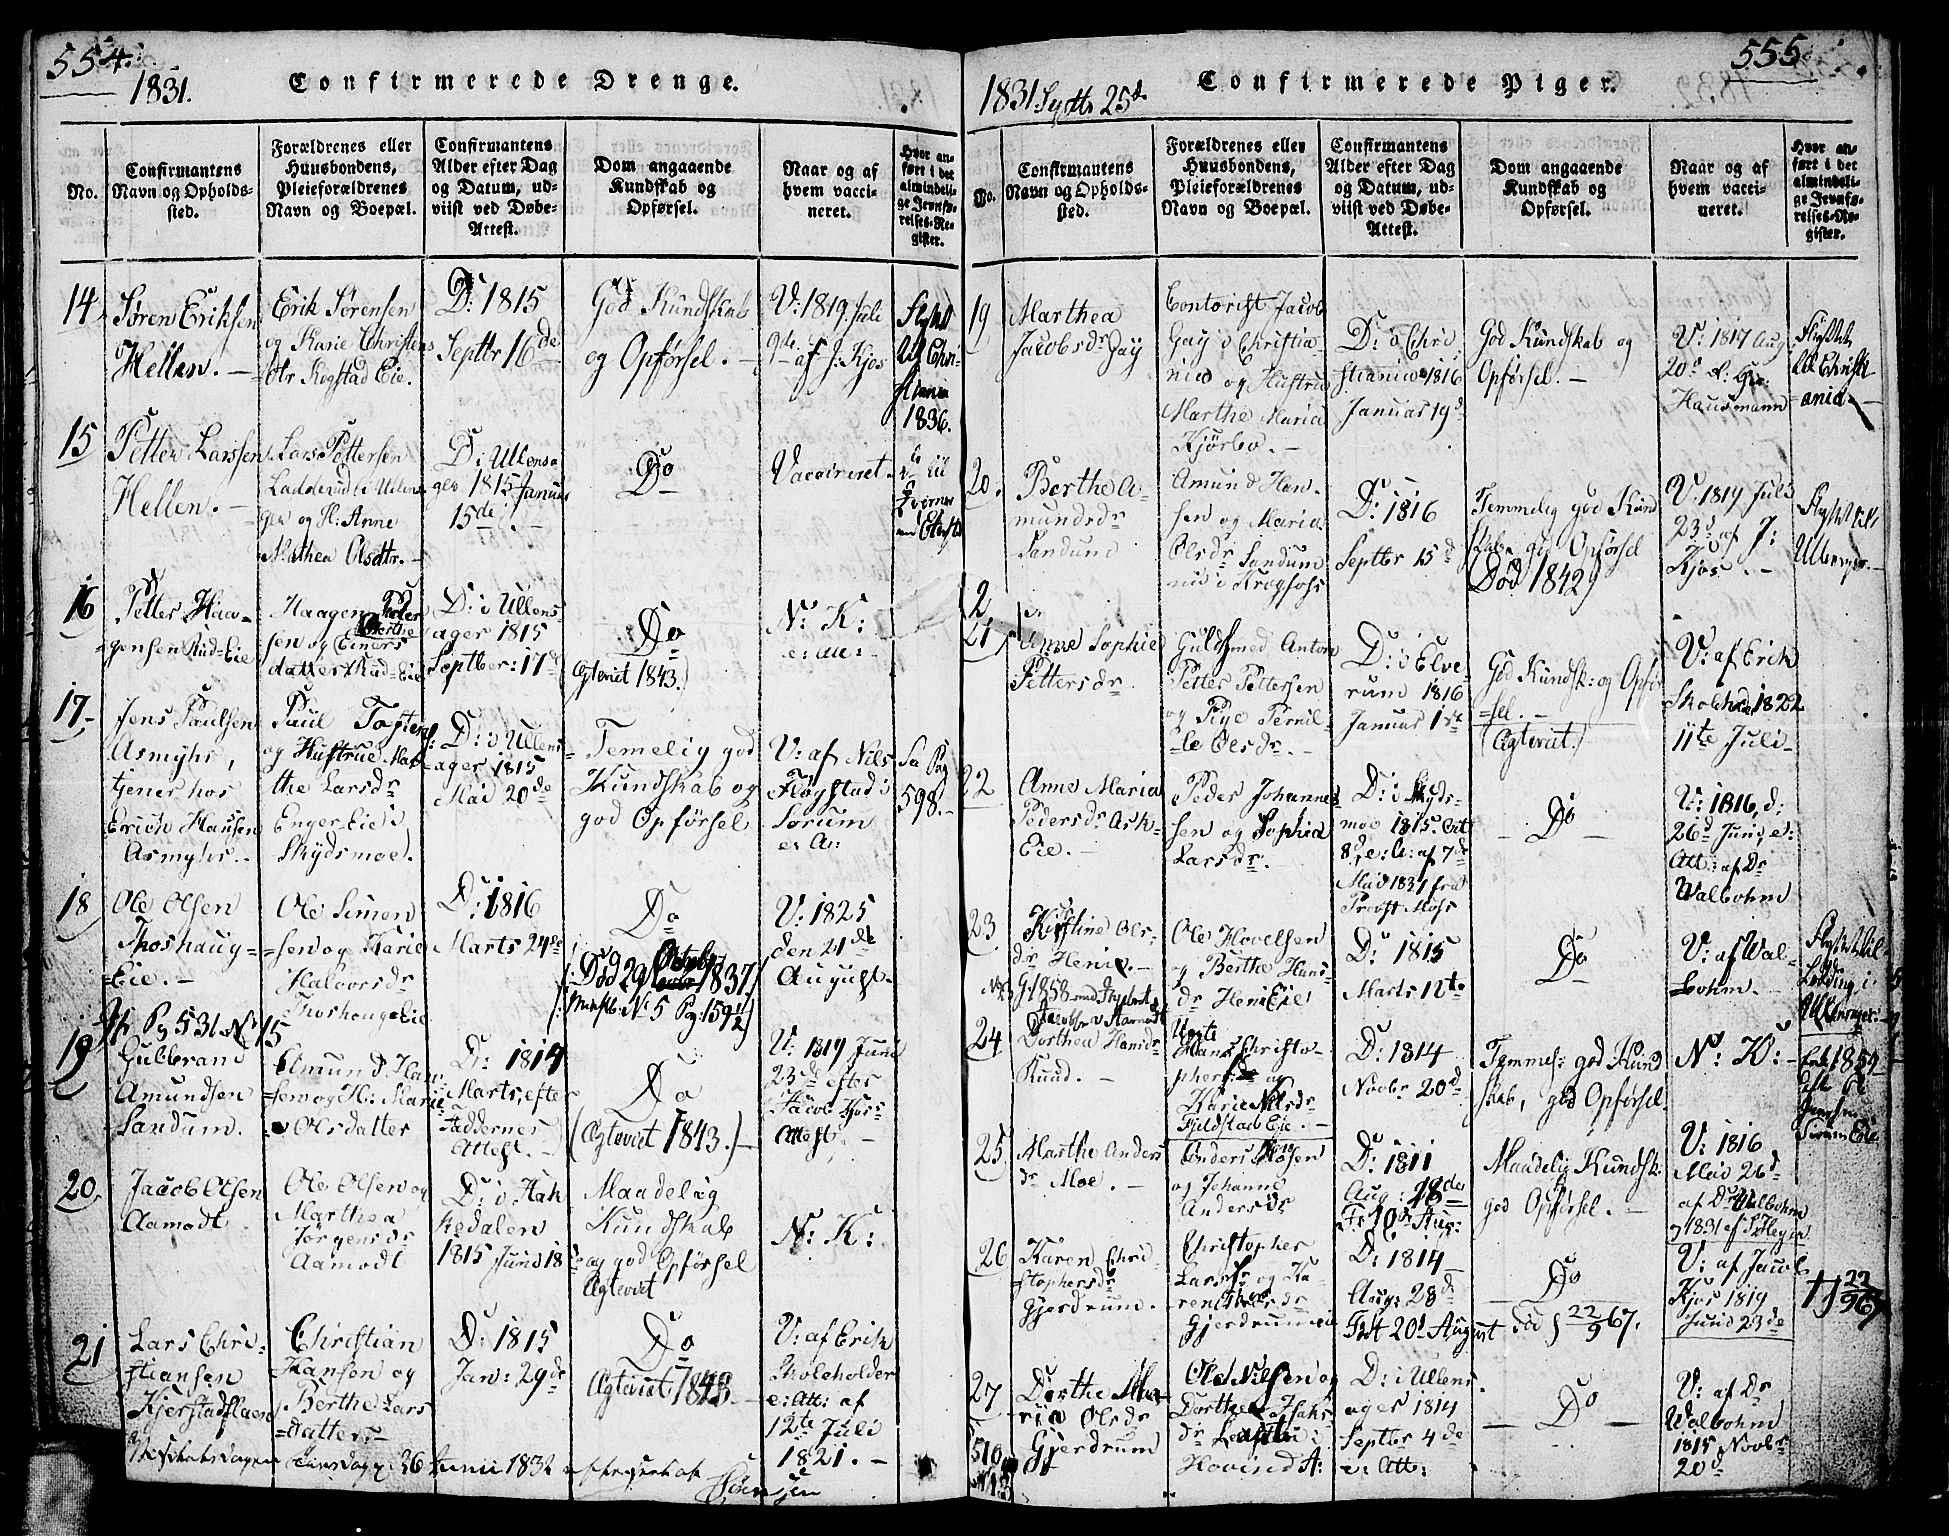 554.
1831.
Confirmerede Drenge.
No.
Confirmantens
Navn og Opholds-
sted.
Forældrenes eller
Huusbondens,
Pleieforældrenes
Navn og Boepæl.
Confirmantens
Alder efter Dag
og Datum, ud-
viist ved Døbe-
Attest.
Dom angaaende
Kundskab og
Opførsel.
Naar og af
hvem vacci-
neret.
Hvor an-
ført i det
almindeli-
ge Jevnfø-
relses-Re-
gister.
14
Søren Eriksen
Hellen. -
Erik Sørensen
og Karie Christens
Dtr Kogstad Eie.
D: 1815
Septbr 16de
God Kundskab
og Opførsel. -
V: 1819 Juli
9de af J. Kjos
Flyttet
til Chri-
stiania
1836.
15
Petter Larssen
Hellen. -
Lars Pettersen
Ladderud i Ullens
ger og H: Anne
Mathea Olsdtr. -
D: i Ullensa
ger 1815 Januar
15de. -
Do
Vaccineret.
16
Petter Haa-
gensen Rud-Eie
Haagen Peder
sen og Berthe
Einers
datter Rud-Eie
D: i Ullens
ager 1815
Septber: 17d
Do
(Ægteviet 1843.)
N: K:
e: an:
17.
Jens Paulsen
Asmyhr,
tjener hos
Erich Hansen
Asmyhr. -
Paul Tosten
og Hustrue Mar
the Larsdr
Enger-Eie i
Skydsmoe.
D: i Ullens
ager 1815
Mai 20de
Temelig god
Kundskab og
god Opførsel
V: af Nils
Fløgstad i
Sørum
e: A:
Se Pag
598.
18
Ole Olsen
Thoshaug-
Eie. -
Ole Simen
sen og Karie
Halvorsdr
Thoshaug Eie
D: 1816
Marts 24de
Do
(: Død 29 Octobr 1837)
(Minstb. No 5 Pag: 159)
V: 1825
den 21de
August. -
Jfr Pag 531 No 15
19
Gulbrand
Amundsen
Sandum.
Amund Han
sen og H: Marie
Olsdatter
D: 1814
Marts, efter
Fadderes
Attest. -
Do
(Ægteviet 1843.)
V: 1819 Juni
23de efter
Jacob Kjos
Attest. -
20.
Jacob Olsen
Aamodt.
Ole Olsen og
Marthea
Jørgensdr
Aamodt
D: i Hak
kedalen
1815 Juni 18
Maadelig
Kundskab
og god Opførsel
Ægteviet
N: K:
21
Lars Chri-
stiansen
Kjerstad
Christian
Hansen og
Berthe Lars
datter
D: 1815
Jan: 29de
Do
Ægteviet 1848.
V: af Erik
Skoleholder
e: Att: af
12te Juli
1821. -
26 Junii 1832
555
1831 Septbr 25d.
Confirmerede Piger.
No.
Confirmantens
Navn og Opholds-
sted.
Forældrenes eller
Huusbondens,
Pleieforældrenes
Navn og Boepæl.
Confirmantens
Alder efter Dag
og Datum, ud-
viist ved Døbe-
Attest.
Dom angaaende
Kundskab og
Opførsel.
Naar og af
hvem vacci-
neret.
Hvor an-
ført i det
almindeli-
ge Jevnfø-
relses-Re-
gister.
19
Marthea
Jacobsdr Gay
Contorist Jacob
Gay i Christia-
nia og Hustrue
Marthe Maria
Kjørbo. -
D: i Chri
stiania 1816
Januar 19d
God Kundskab og
Opførsel. -
V: 1817 Aug
20d
Hausmann
Flyttet
til Christi
ania -
20.
Berthe A-
mundsdr
Sandum
Amund Han-
sen og Maria
Olsdr Sandum
D: 1816
Septbr 15d
Temmelig god Kund
skab, god Opførsel
(Død 1842)
V: 1819 Juli
23d af J:
Kjos. -
Flyttet til
21
Anne Sophie
Pettersdr
Guldsmed Anton
Petter Pettersen
og Pige Pernil-
le Olsdr. -
D: i Elve
rum 1816
Januar 1ste
God Kundsk: og Opfør
sel. -
(Ægteviet.)
V: af Erik
Skoleh. 1822
11te Juli -
22
Anne Maria
Pedersdr Ask-
Eie. -
Peder Johannes
sen og Sophia
Larsdr. -
D: i Skyds-
moe 1815. Oct
8de e: A: af 7de
Mai 1831 fra
Provst Moss
Do
V: 1816, d:
26d Juni, e:
Att: af Dr
Walbohm
23
Kirstine Ols-
dr Henie. -
Ole Hovelsen
og Berthe Hans
dr Heni Eie
D: 1815
Marts 12te
Do
V: af Wal-
bohm. -
Flyttet til
24
Dorthea Hansdr
Ruud. -
Uægte
Hans Christo-
phersen og
Karie Nilsdr
Fjeldstad Eie. -
D: 1814
Novbr 20d
Temmel: god Kund
skab, god Opførsel.
N: K: -
25
Marthe Anders
dr Moe. -
Anders Olosen
og Johanne
Andersdr
D: 1811
Aug: 28de
Maadelig Kundsk:
god Opførsel. -
V: 1816
Mai 26d
af Dr Walbohm
26
Karen Chri-
stophersdr
Gjerdrum. -
Christopher
Larsen og Ka-
ren
Gjerdrum
D: 1814
Aug: 28d
Født 20d August
Do
død 22/9 67.
V: af Jacob
Kjos 1819
Juni 23de
27
Dorthe Ma-
ria Olsdr
Gjerdrum
Ole Nilsen og
Dorthea Isaks
dr
Hovind A:
D: i Ullens
ager 1814
Septbr 4de
e: Att:
Do
V: af Dr
Walbohm
1815 Novbr
20d
510